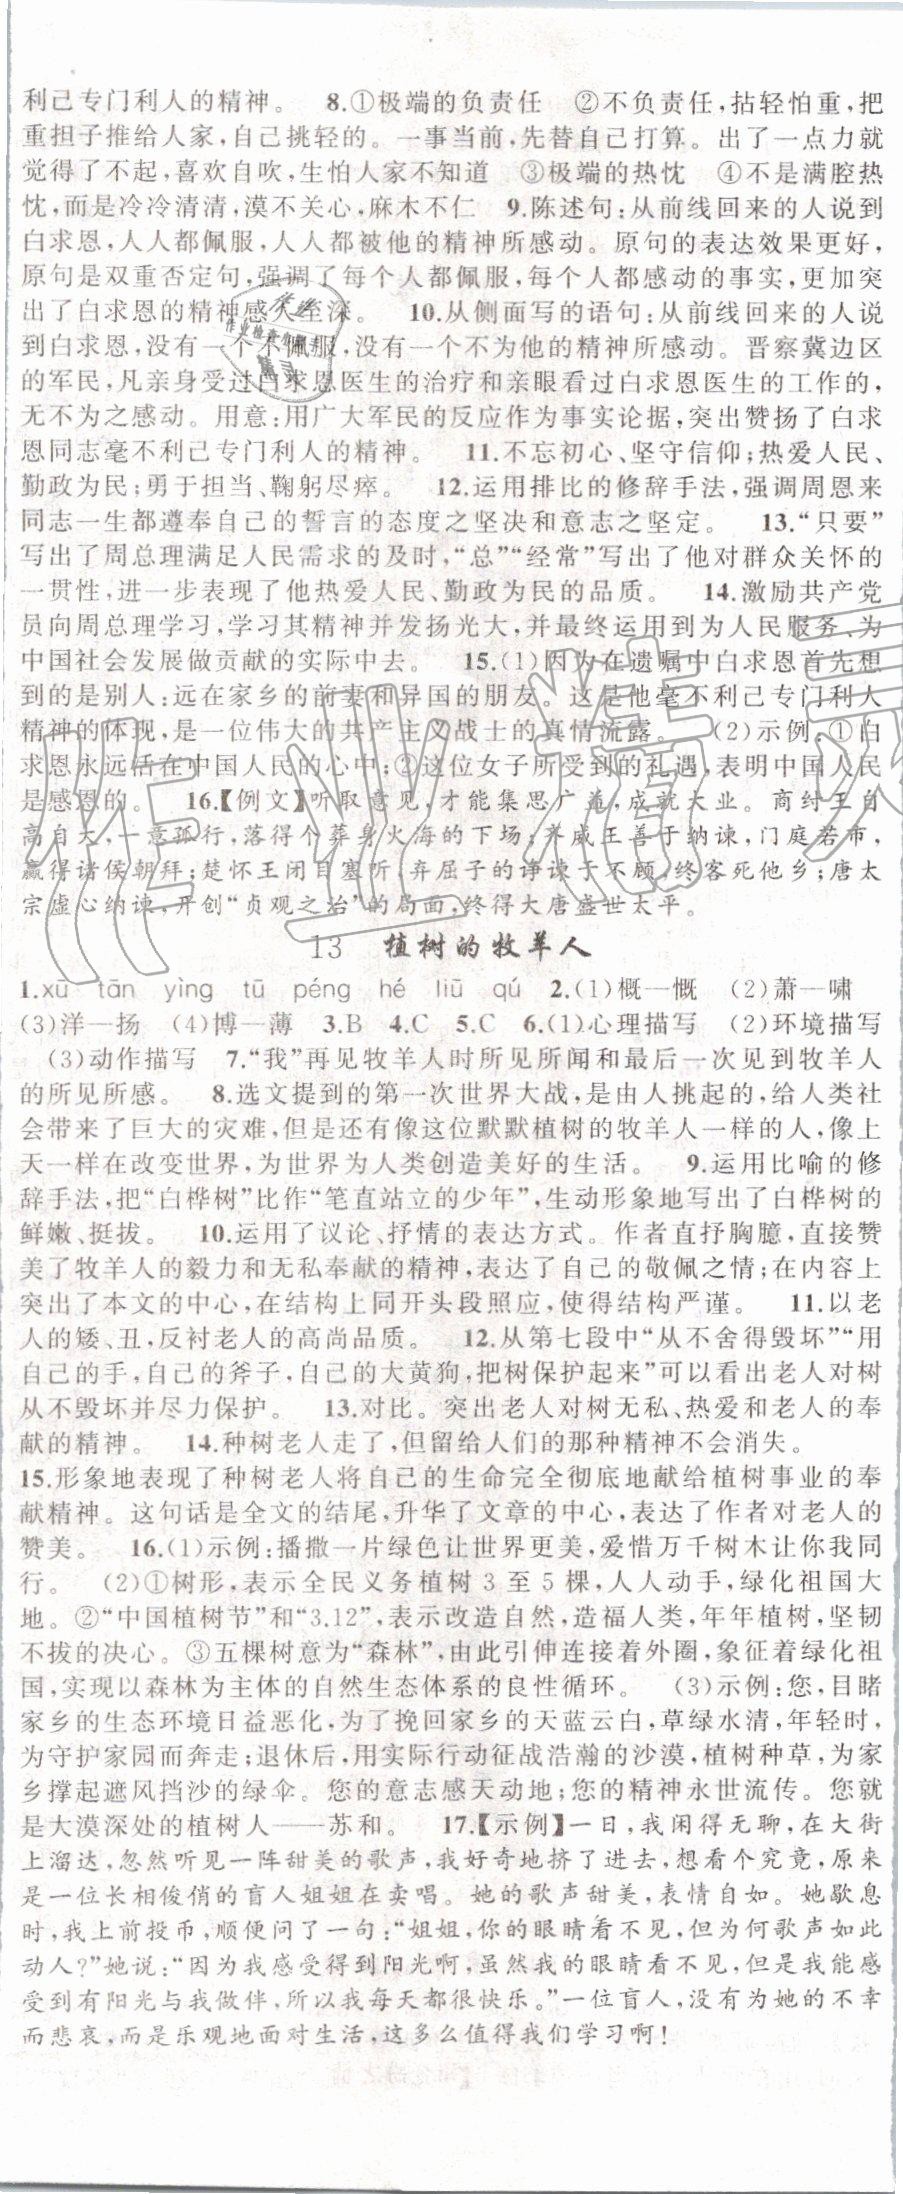 利己专门利人的精神。 8.①极端的负责任 ②不负责任,拈轻怕重,把
重担子推给人家,自己挑轻的。一事当前,先替自己打算。出了一点力就
觉得了不起,喜欢自吹,生怕人家不知道 ③极端的热忱 ④不是满腔热
忱,而是冷冷清清,漠不关心,麻木不仁 9.陈述句:从前线回来的人说到
白求恩,人人都佩服,人人都被他的精神所感动。原句的表达效果更好,
原句是双重否定句,强调了每个人都佩服,每个人都感动的事实,更加突
出了白求恩的精神感人至深。 10.从侧面写的语句:从前线回来的人说
到白求恩,没有一个不佩服,没有一个不为他的精神所感动。晋察冀边区
的军民,凡亲身受过白求恩医生的治疗和亲眼看过白求恩医生的工作的,
无不为之感动。用意:用广大军民的反应作为事实论据,突出赞扬了白求
恩同志毫不利己专门利人的精神。 11.不忘初心、坚守信仰;热爱人民、
勤政为民;勇于担当、鞠躬尽瘁。 12.运用排比的修辞手法,强调周恩来
同志一生都遵奉自己的誓言的态度之坚决和意志之坚定。 13.“只要”
写出了周总理满足人民需求的及时,“总”“经常”写出了他对群众关怀的
一贯性,进一步表现了他热爱人民、勤政为民的品质。 14.激励共产党
员向周总理学习,学习其精神并发扬光大,并最终运用到为人民服务、为
中国社会发展做贡献的实际中去。 15.(1)因为在遗嘱中白求恩首先想
到的是别人:远在家乡的前妻和异国的朋友。这是他毫不利己专门利人
精神的体现,是一位伟大的共产主义战士的真情流露。 (2)示例:①白
求恩永远活在中国人民的心中;②这位女子所受到的礼遇,表明中国人民
是感恩的。 16.【例文】听取意见,才能集思广益,成就大业。商纣王自
高自大,一意孤行,落得个葬身火海的下场;齐威王善于纳谏,门庭若市,
赢得诸侯朝拜;楚怀王闭目塞听,弃屈子的诤谏于不顾,终客死他乡;唐太
宗虚心纳谏,开创“贞观之治”的局面,终得大唐盛世太平。
13 植树的牧羊人
1.xū tān yìng tū péng hé liū qú 2.(1)概—慨 (2)萧—啸
(3)洋—扬 (4)博—薄 3.B 4.C 5.C 6.(1)心理描写 (2)环境描写
(3)动作描写 7.“我”再见牧羊人时所见所闻和最后一次见到牧羊人
的所见所感。 8.选文提到的第一次世界大战,是由人挑起的,给人类社
会带来了巨大的灾难,但是还有像这位默默植树的牧羊人一样的人,像上
天一样在改变世界,为世界为人类创造美好的生活。 9.运用比喻的修
辞手法,把“白桦树”比作“笔直站立的少年”,生动形象地写出了白桦树的
鲜嫩、挺拔。 10.运用了议论、抒情的表达方式。作者直抒胸臆,直接赞
美了牧羊人的毅力和无私奉献的精神,表达了自己的敬佩之情;在内容上
突出了本文的中心,在结构上同开头段照应,使得结构严谨。 11.以老
人的矮、丑,反衬老人的高尚品质。 12.从第七段中“从不舍得毁坏”“用
自己的手,自己的斧子,自己的大黄狗,把树保护起来”可以看出老人对树
从不毁坏并尽力保护。 13.对比。突出老人对树无私、热爱和老人的奉
献的精神。 14.种树老人走了,但留给人们的那种精神不会消失。
15.形象地表现了种树老人将自己的生命完全彻底地献给植树事业的奉
献精神。这句话是全文的结尾,升华了文章的中心,表达了作者对老人的
赞美。 16.(1)示例:播撒一片绿色让世界更美,爱惜万千树木让你我同
行。 (2)①树形,表示全民义务植树 3 至 5 棵,人人动手,绿化祖国大
地。②“中国植树节”和“3.12”,表示改造自然,造福人类,年年植树,坚韧
不拔的决心。③五棵树意为“森林”,由此引伸连接着外圈,象征着绿化祖
国,实现以森林为主体的自然生态体系的良性循环。 (3)示例:您,目睹
家乡的生态环境日益恶化,为了挽回家乡的天蓝云白,草绿水清,年轻时,
为守护家园而奔走;退休后,用实际行动征战浩瀚的沙漠,植树种草,为家
乡撑起遮风挡沙的绿伞。您的意志感天动地;您的精神永世流传。您就
是大漠深处的植树人——苏和。 17.【示例】一日,我闲得无聊,在大街
上溜达,忽然听见一阵甜美的歌声,我好奇地挤了进去,想看个究竟,原来
是一位长相俊俏的盲人姐姐在卖唱。她的歌声甜美,表情自如。她歇息
时,我上前投币,顺便问了一句:“姐姐,你的眼睛看不见,但为何歌声如此
动人?”她说:“因为我感受得到阳光啊,虽然我的眼睛看不见,但是我能感
受到有阳光与我做伴,所以我每天都很快乐。”一位盲人,没有为她的不幸
而悲哀,而是乐观地面对生活,这多么值得我们学习啊!